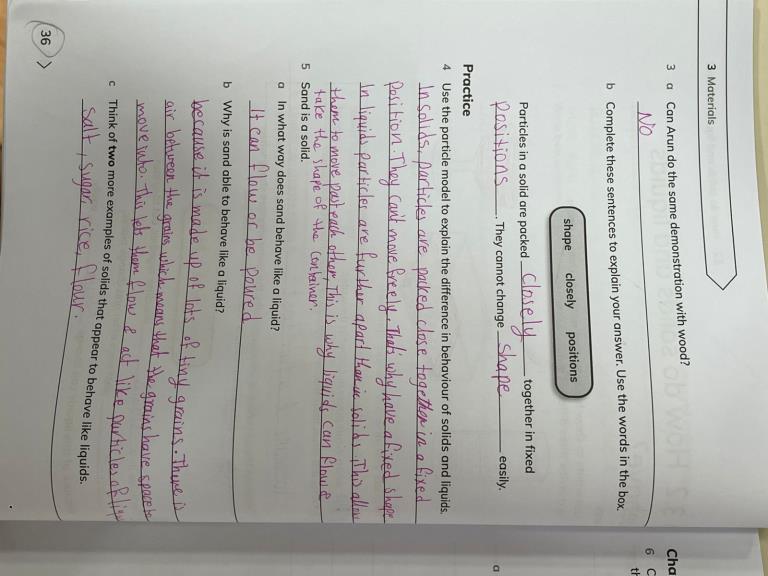 3 Materials
3 a Can Arun do the same demonstration with wood?
No
b Complete these sentences to explain your answer. Use the words in the box.
shape closely positions
Particles in a solid are packed closely together in fixed
positions. They cannot change shape easily.
Practice
4 Use the particle model to explain the difference in behaviour of solids and liquids.
In solids, particles are packed close together in a fixed
position. They can't move freely. That's why have a fixed shape
In liquids particles are further apart than in solids. This allow
them to move past each other. This is why liquids can flow &
take the shape of the container.
5 Sand is a solid.
a In what way does sand behave like a liquid?
It can flow or be poured
b Why is sand able to behave like a liquid?
because it is made up of lots of tiny grains. There is
air between the grains which means that the grains have space to
move into. This lets them flow & act like particles of liqu
c Think of two more examples of solids that appear to behave like liquids.
Salt, sugar, rice, flour.
36
Cha
6 C
th
a